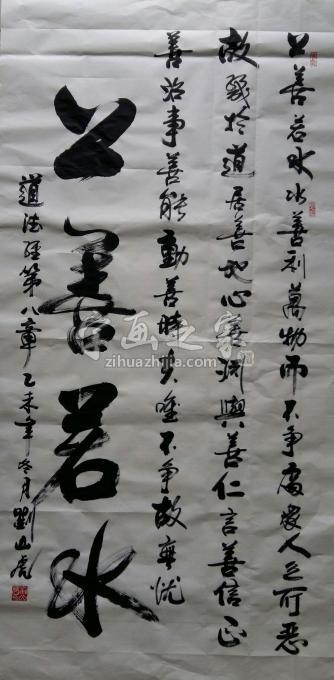 上善若水水善利萬物而不争處衆人之所惡
故幾於道居善地心善渊與善仁言善信正
善治事善能動善時夫唯不争故無忧
上善若水
道德经第八章乙未年冬月劉山虎
字画之家
zihuazhijia.com